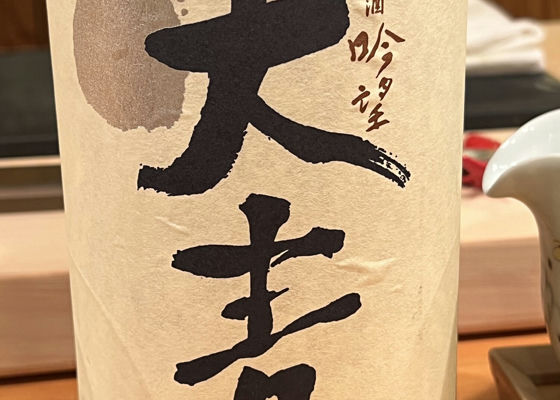 酒 吟望
天青